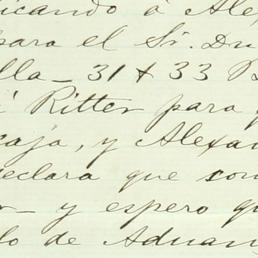 icando á Ale
para el Sr. Du
lla_ 31 & 33 B
á Ritter para
caja, y Alexan
declara que con
y espero qu
lo de Aduan